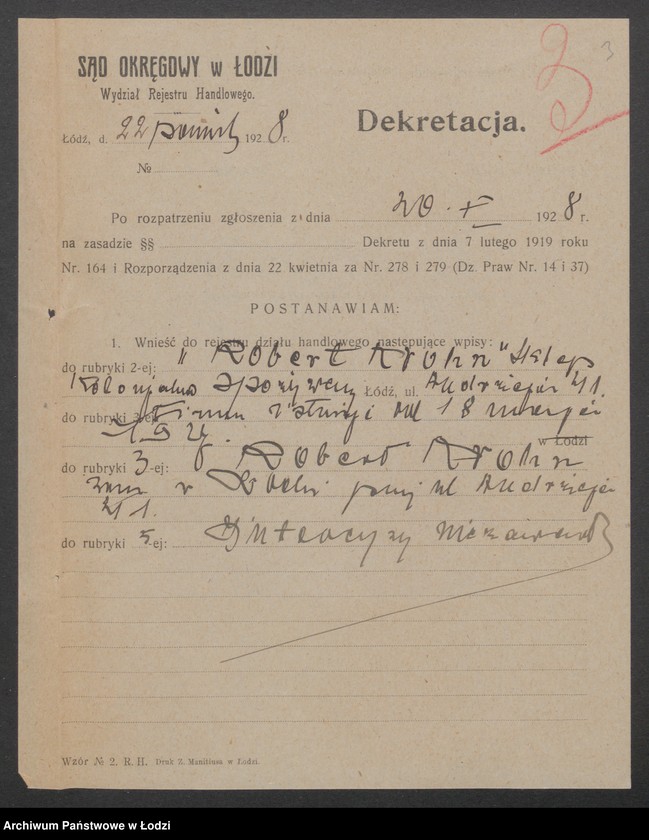 3
SĄD OKRĘGOWY w ŁODZI
Wydział Rejestru Handlowego.
Łódź, d. 22 1928 r.
Dekretacja.
№
Po rozpatrzeniu zgłoszenia z dnia 20 · X 1928 r.
na zasadzie §§ Dekretu z dnia 7 lutego 1919 roku
Nr. 164 i Rozporządzenia z dnia 22 kwietnia za Nr. 278 i 279 (Dz. Praw Nr. 14 i 37)
POSTANAWIAM:
1. Wnieść do rejestru działu handlowego następujące wpisy:
do rubryki 2-ej: "Robert Krohn" Sklep
Kolonjalno Spożywczy Łódź, ul. Andrzeja 41.
do rubryki 3-ej: Firma istnieje od 18 marca
w Łodzi
do rubryki 3-ej: Robert Krohn
zam w Łodzi przy ul Andrzeja
41.
do rubryki 5-ej: Intercyzy nie zawarł
Wzór № 2. R. H. Druk Z. Manitiusa w Łodzi.
Archiwum Państwowe w Łodzi